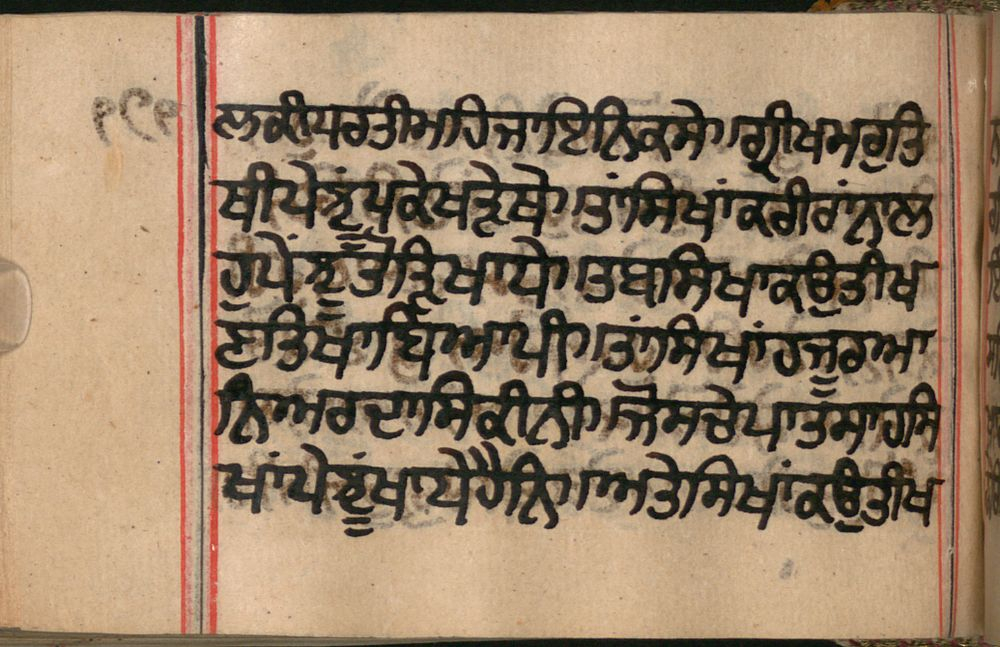 ਲਕੀਧਰਤੀਮਹਿਜਾਇਨਿਕਸੇ। ਗ੍ਰੀਖਮਰੁਤਿ
ਥੀਪੇਨੂੰਪਕੇਖਤ੍ਰੇਥੇ। ਤਾਂਸਿਖਾਂਕਰੀਰਾਂਨਾਲ
ਹੁਪੇਨੂੰਤੋੜਿਖਾਧੇ। ਤਬਸਿਖਾਕਉਤੀਖ
ਣਤਿਖਾਬਿਆਪੀ। ਤਾਂਸਿਖਾਂਹਜੂਰਆ
ਨਿਅਰਦਾਸਿਕੀਨੀ। ਜੋਸਚੇਪਾਤਸਾਹਸਿ
ਖਾਂਪੇਨੂੰਖਾਧੇਹੈਨਿ। ਅਤੇਸਿਖਾਂਕਉਤੀਖ